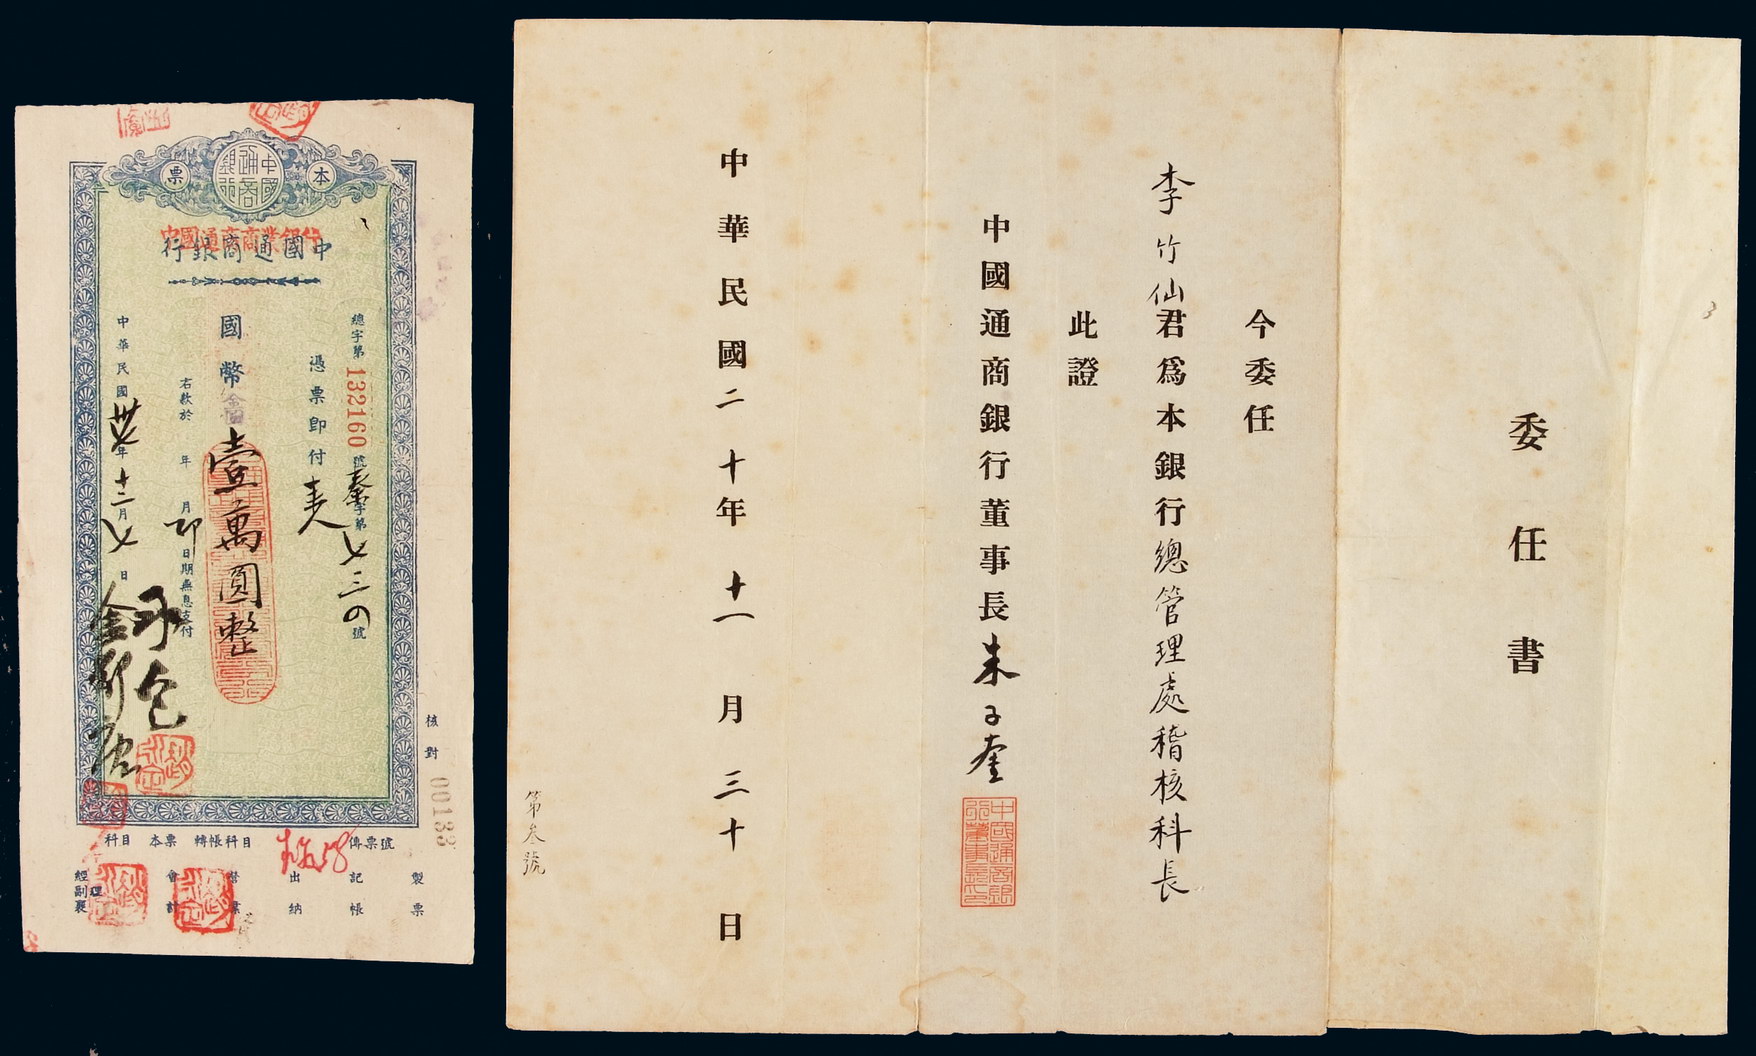 本票
中國通商銀行
中國通商商業銀行
中國通商銀行
總字第132160號
字第七三〇號
憑票即付
來人
國幣
壹萬圓整
右款於 年 月 日期無息支付
即
中華民國卅 年十二月七日
核對
00133
科目 本票 轉帳科目 傳票號
經副襄理 會計 營業 出納 記帳 製票
委任書
今委任
李竹仙君爲本銀行總管理處稽核科長
此證
中國通商銀行董事長朱子奎
中國通商銀行董事長之印
中華民國二十年十一月三十日
第叁號